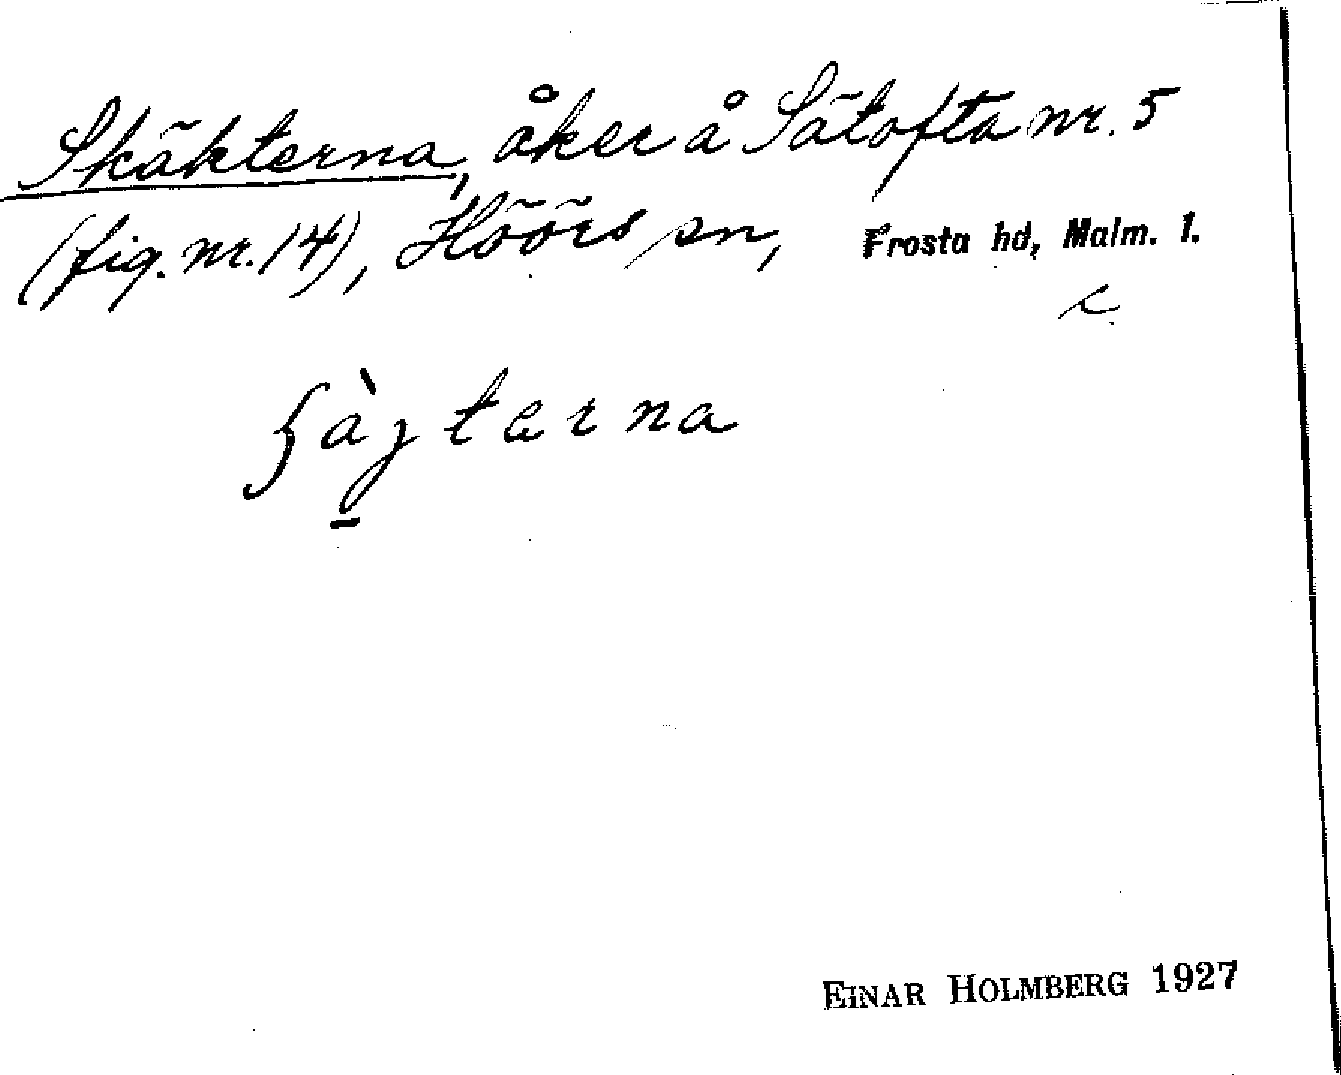 Skäkterna, åker å Sätofta nr. 5
(fig. nr. 14), Höörs sn, Frosta hd, Malm. l.
EINAR HOLMBERG 1927